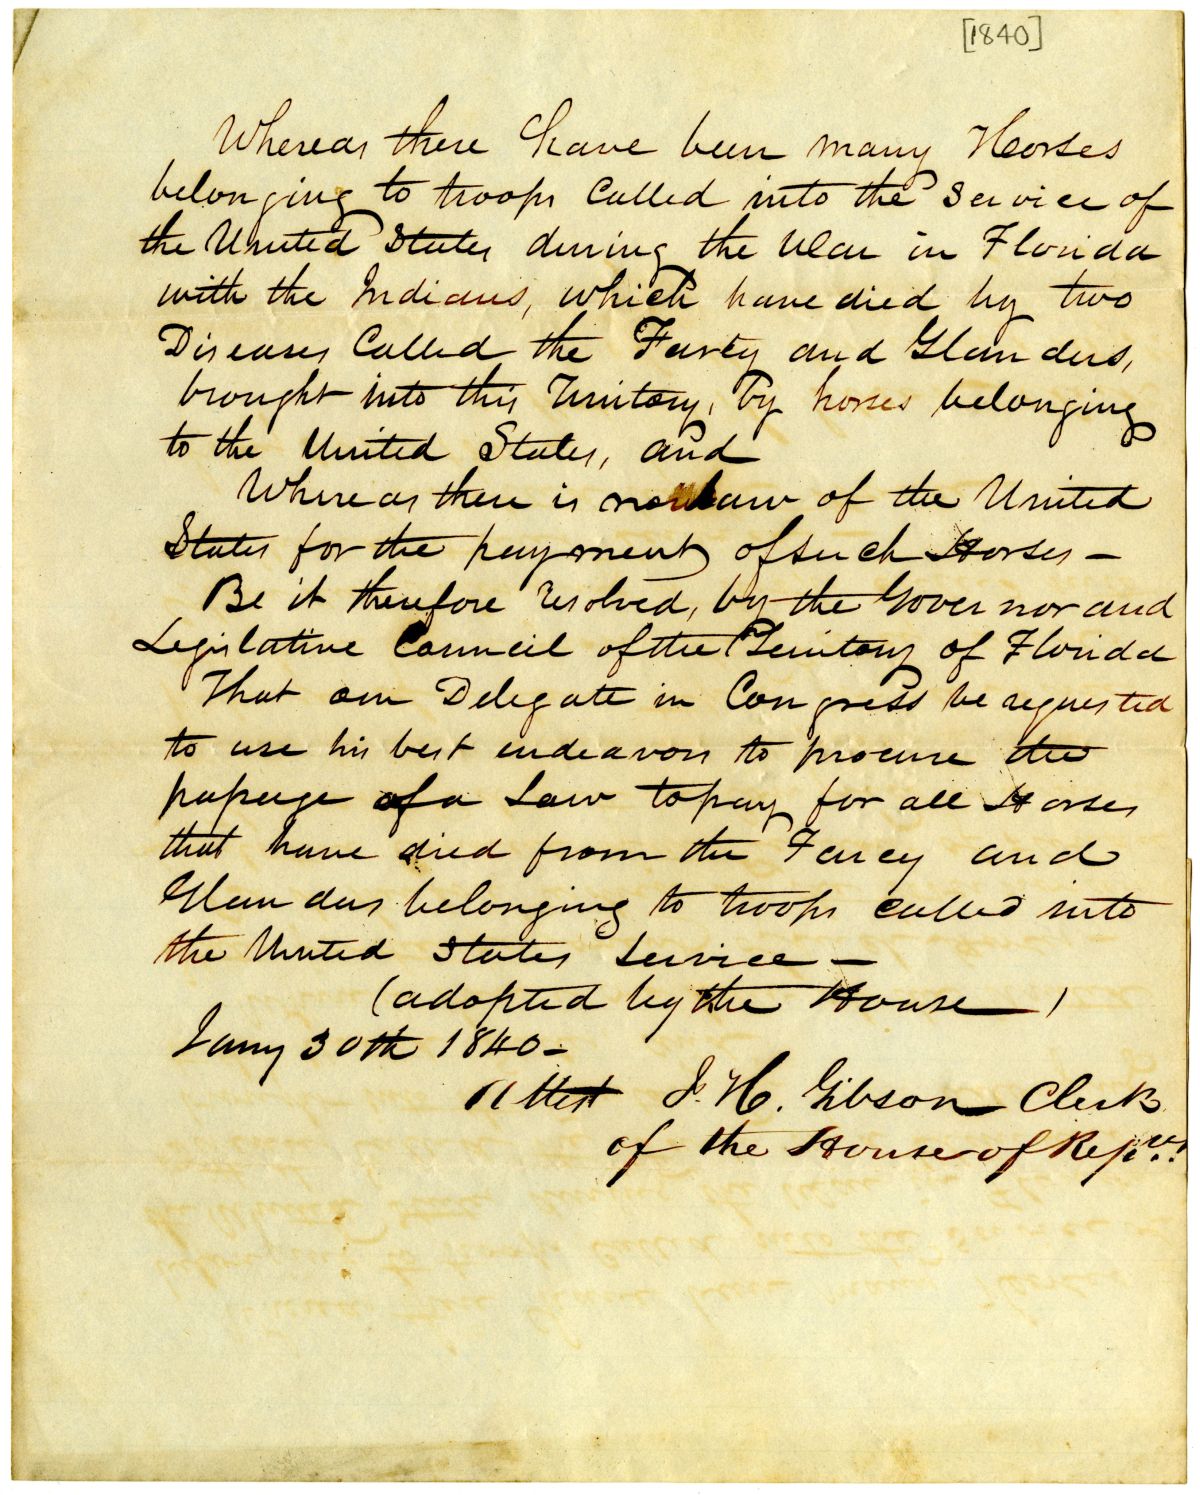 [1840]
Whereas there have been many Horses
belonging to troops Called into the Service of
the United States during the War in Florida
with the Indians, which have died by two
Diseases Called the Farcy and Glanders,
brought into this Territory, by horses belonging
to the United States, and
Whereas there is no Law of the United
States for the payment of such Horses -
Be it therefore resolved, by the Governor and
Legislative Council of the Territory of Florida
That our Delegate in Congress be requested
to use his best endeavors to procure the
passage of a Law to pay for all Horses
that have died from the Farcy and
Glanders belonging to troops called into
the United States Service -
(adopted by the House )
Jany 30th 1840 -
Attest J. H. Gibson Clerk
of the House of Repvs.